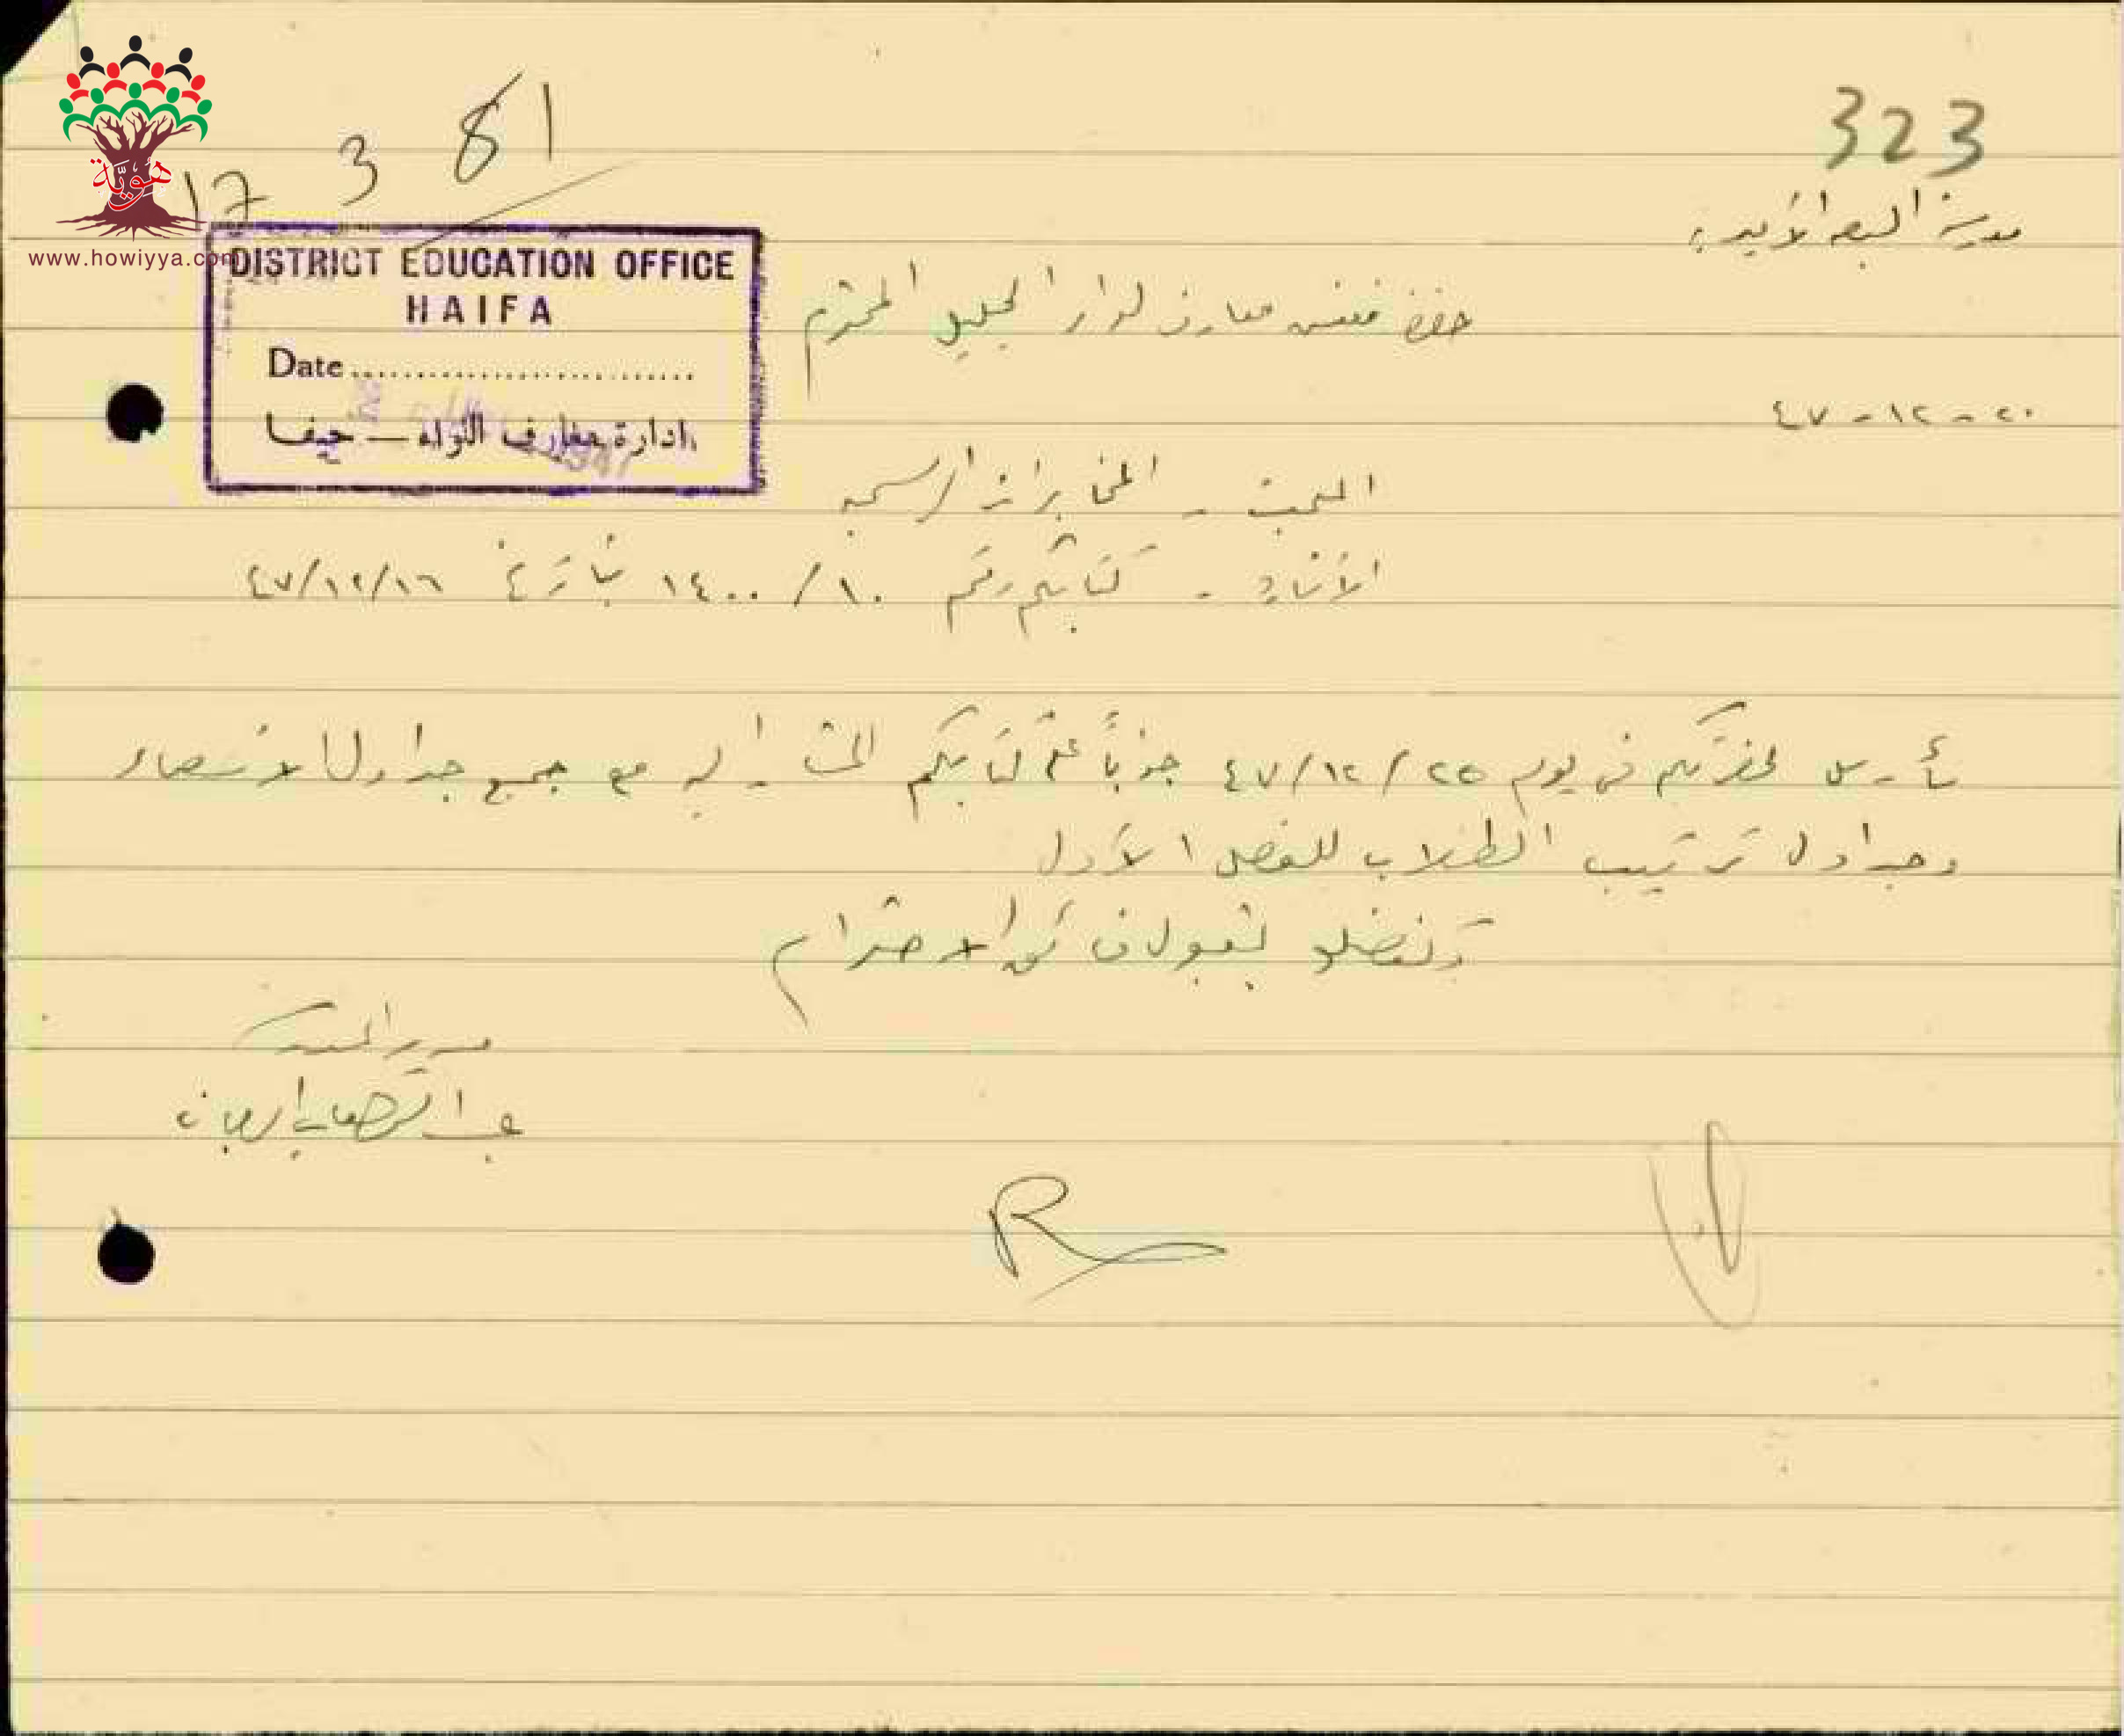 323
17 3 81
هوية
www.howiyya.com
مدرسة البعنه الأميرية
DISTRICT EDUCATION OFFICE
HAIFA
Date
ادارة معارف اللواء – حيفا
حضرة مفتش معارف لواء الجليل المحترم
٢٠ - ١٢ - ٤٧
المبحث - المخابرات الرسمية
الأشارة - كتابكم رقم ١٠ / ١٤٠٠ بتاريخ ٤٧/١٢/١٦
سأرسل لحضرتكم في يوم ٢٥ / ٤٧/١٢ جواباً على كتابكم المشار اليه مع جميع جداول الاحصاء
وجداول ترتيب الطلاب للفصل الأول
وتفضلو بقبول فائق الاحترام
مدير المدرسة
عبد
R